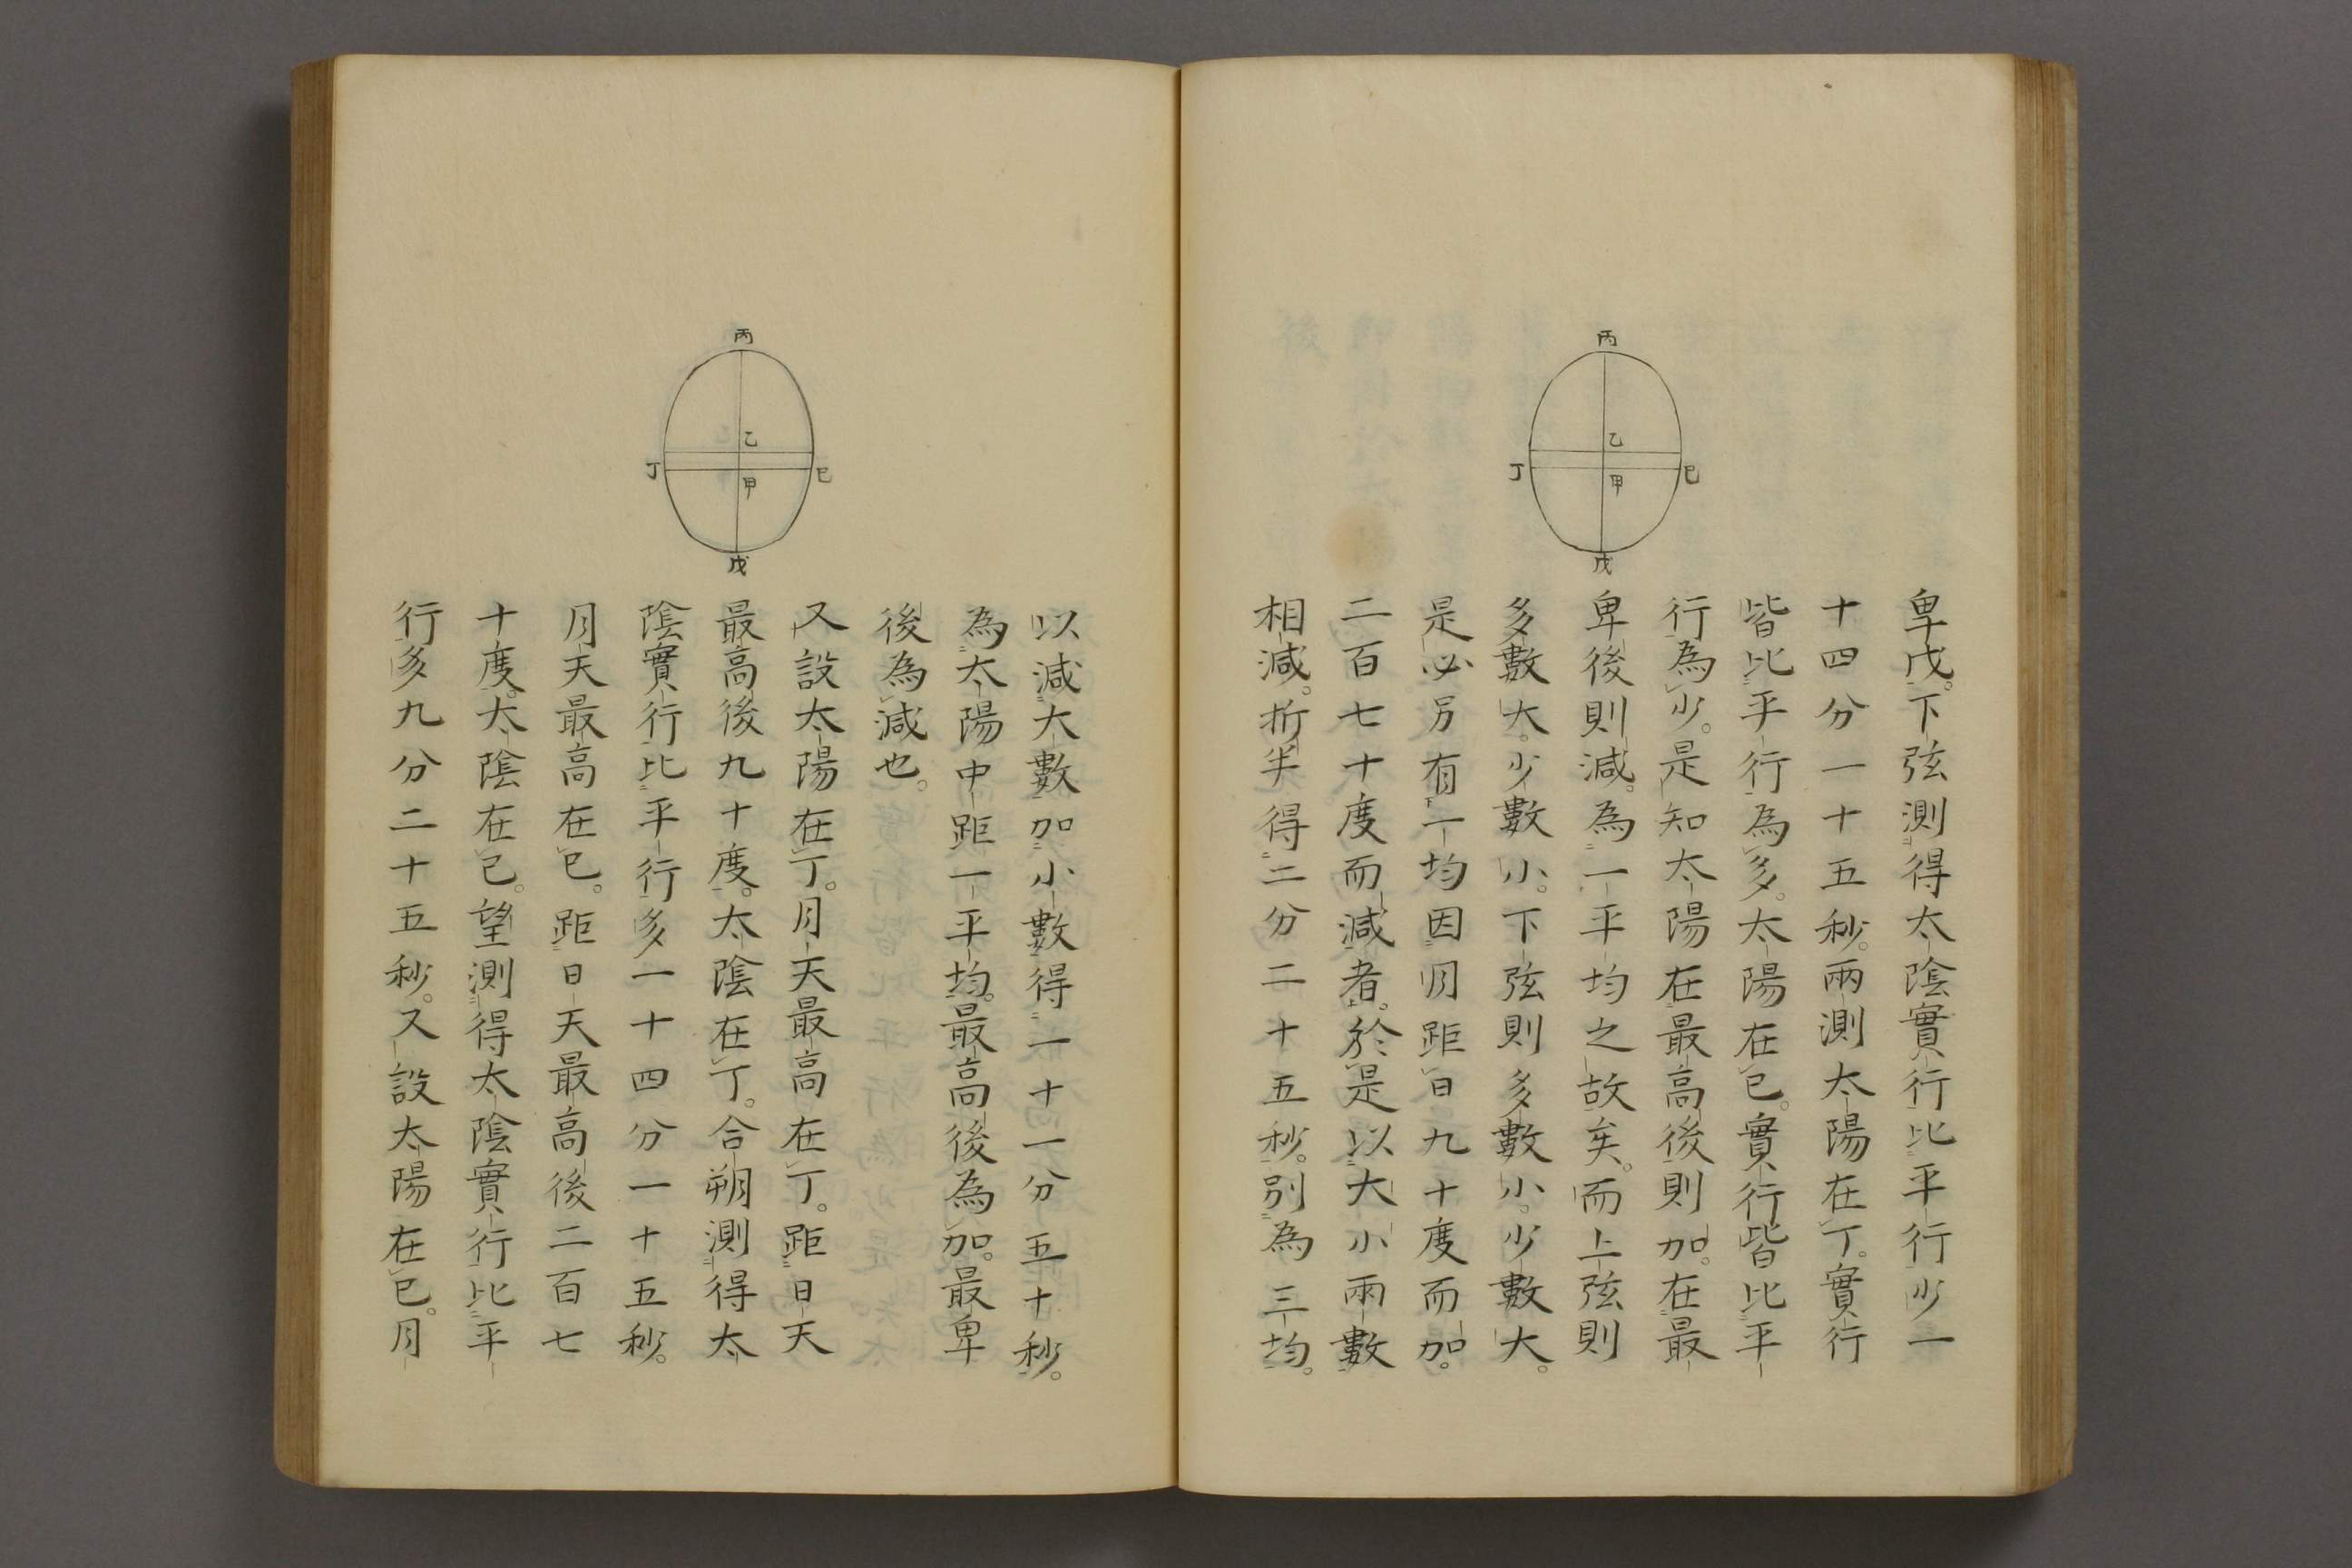 丙
乙
丁
己
甲
戊
卑戊。下弦測得太陰實行比平行少一
十四分一十五秒。兩測太陽在丁。實行
皆比平行為多。太陽在已。實行皆比平
行為少。是知太陽在最高後則加。在最
卑後則減。為一平均之故矣。而上弦則
多數大。少數小。下弦則多數小。少數大。
是必另有一均因月距日九十度而加。
二百七十度而減者。於是以大小兩數
相減。折半得二分二十五秒。別為三均。
丙
乙
丁
己
甲
戊
以減大數加小數得一十一分五十秒。
為太陽中距一平均。最高後為加。最卑
後為減也。
又設太陽在丁。月天最高在丁。距日天
最高後九十度。太陰在丁。合朔測得太
陰實行比平行多一十四分一十五秒。
月天最高在已。距日天最高後二百七
十度。太陰在已。望測得太陰實行比平
行多九分二十五秒。又設太陽在已。月